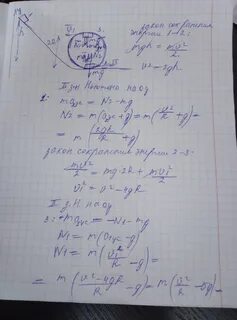 закон сохранения
энергии 1-2:
mgh = mv²/2
v² = 2gh
II з.Н. Ньютона на оД
2: maцс = N2 - mg
N2 = m(aцс + g) = m(v²/R + g) =
= m(2gh/R + g)
закон сохранения энергии 2-3:
mv²/2 = mg·2R + mv1²/2
v1² = v² - 4gR
II з.Н. на оД
3: maцс = -N1 - mg
N1 = m(aцс - g)
N1 = m(v1²/R - g) =
= m(v² - 4gR/R - g) = m(v²/R - 5g) =